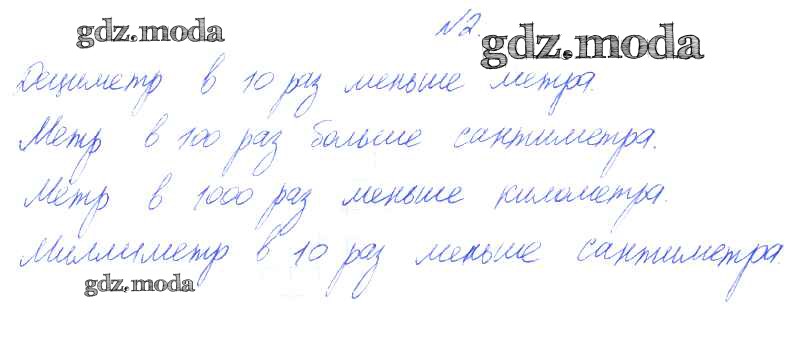 №2.
gdz.moda
gdz.moda
Дециметр в 10 раз меньше метра.
Метр в 100 раз больше сантиметра.
Метр в 1000 раз меньше километра.
Миллиметр в 10 раз меньше сантиметра.
gdz.moda